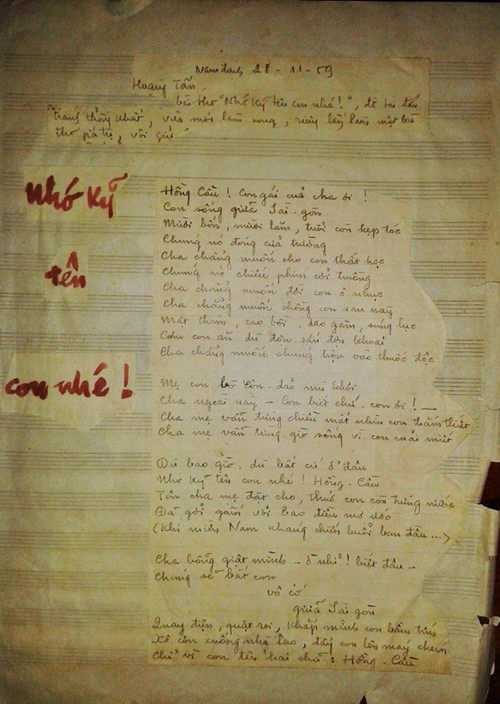 Nam định 28-11-59
Hoàng Tấn
bài thơ "Nhớ kỹ tên con nhé!", đề tài đấu
tranh thống nhất, vừa mới làm xong,
thơ giá trị, vội gửi
Nhớ kỹ
tên
con nhé!
Hồng Cầu! Con gái của cha ơi!
Con sống giữa Sài-gòn
Mười bốn, mười lăm, tuổi con kẹp tóc
Chúng nó đóng cửa trường
Cha chẳng muốn cho con thất học
Chúng nó chiếu phim cởi truồng
Cha chẳng muốn đời con ô nhục
Cha chẳng muốn chồng con sau này
Mắt thâm, cao bồi, dao găm, súng lục
Cơm con ăn dù độn sắn độn khoai
Cha chẳng muốn chúng trộn vào thuốc độc
Mẹ con bờ Côn-đảo mù khơi
Cha ngoài này - Con biết chứ, con ơi! -
Cha mẹ vẫn từng chiều mắt nhìn con thắm thiết
Cha mẹ vẫn từng giờ sống vì con mải miết
Dù bao giờ, dù bất cứ ở đâu
Nhớ kỹ tên con nhé! Hồng-Cầu
Tên cha mẹ đặt cho, thuở con còn trứng nước
Đã gởi gắm với bao điều mơ ước
(Khi miền Nam kháng chiến buổi ban đầu...)
Cha bỗng giật mình - ồ nhỉ! biết đâu -
Chúng sẽ bắt con
vô cớ
giữa Sài gòn
Quay điện, quật roi, khắp mình con bầm tím
Xô con xuống nhà lao, đẩy con lên máy chém
Chỉ vì con tên hai chữ: Hồng-Cầu